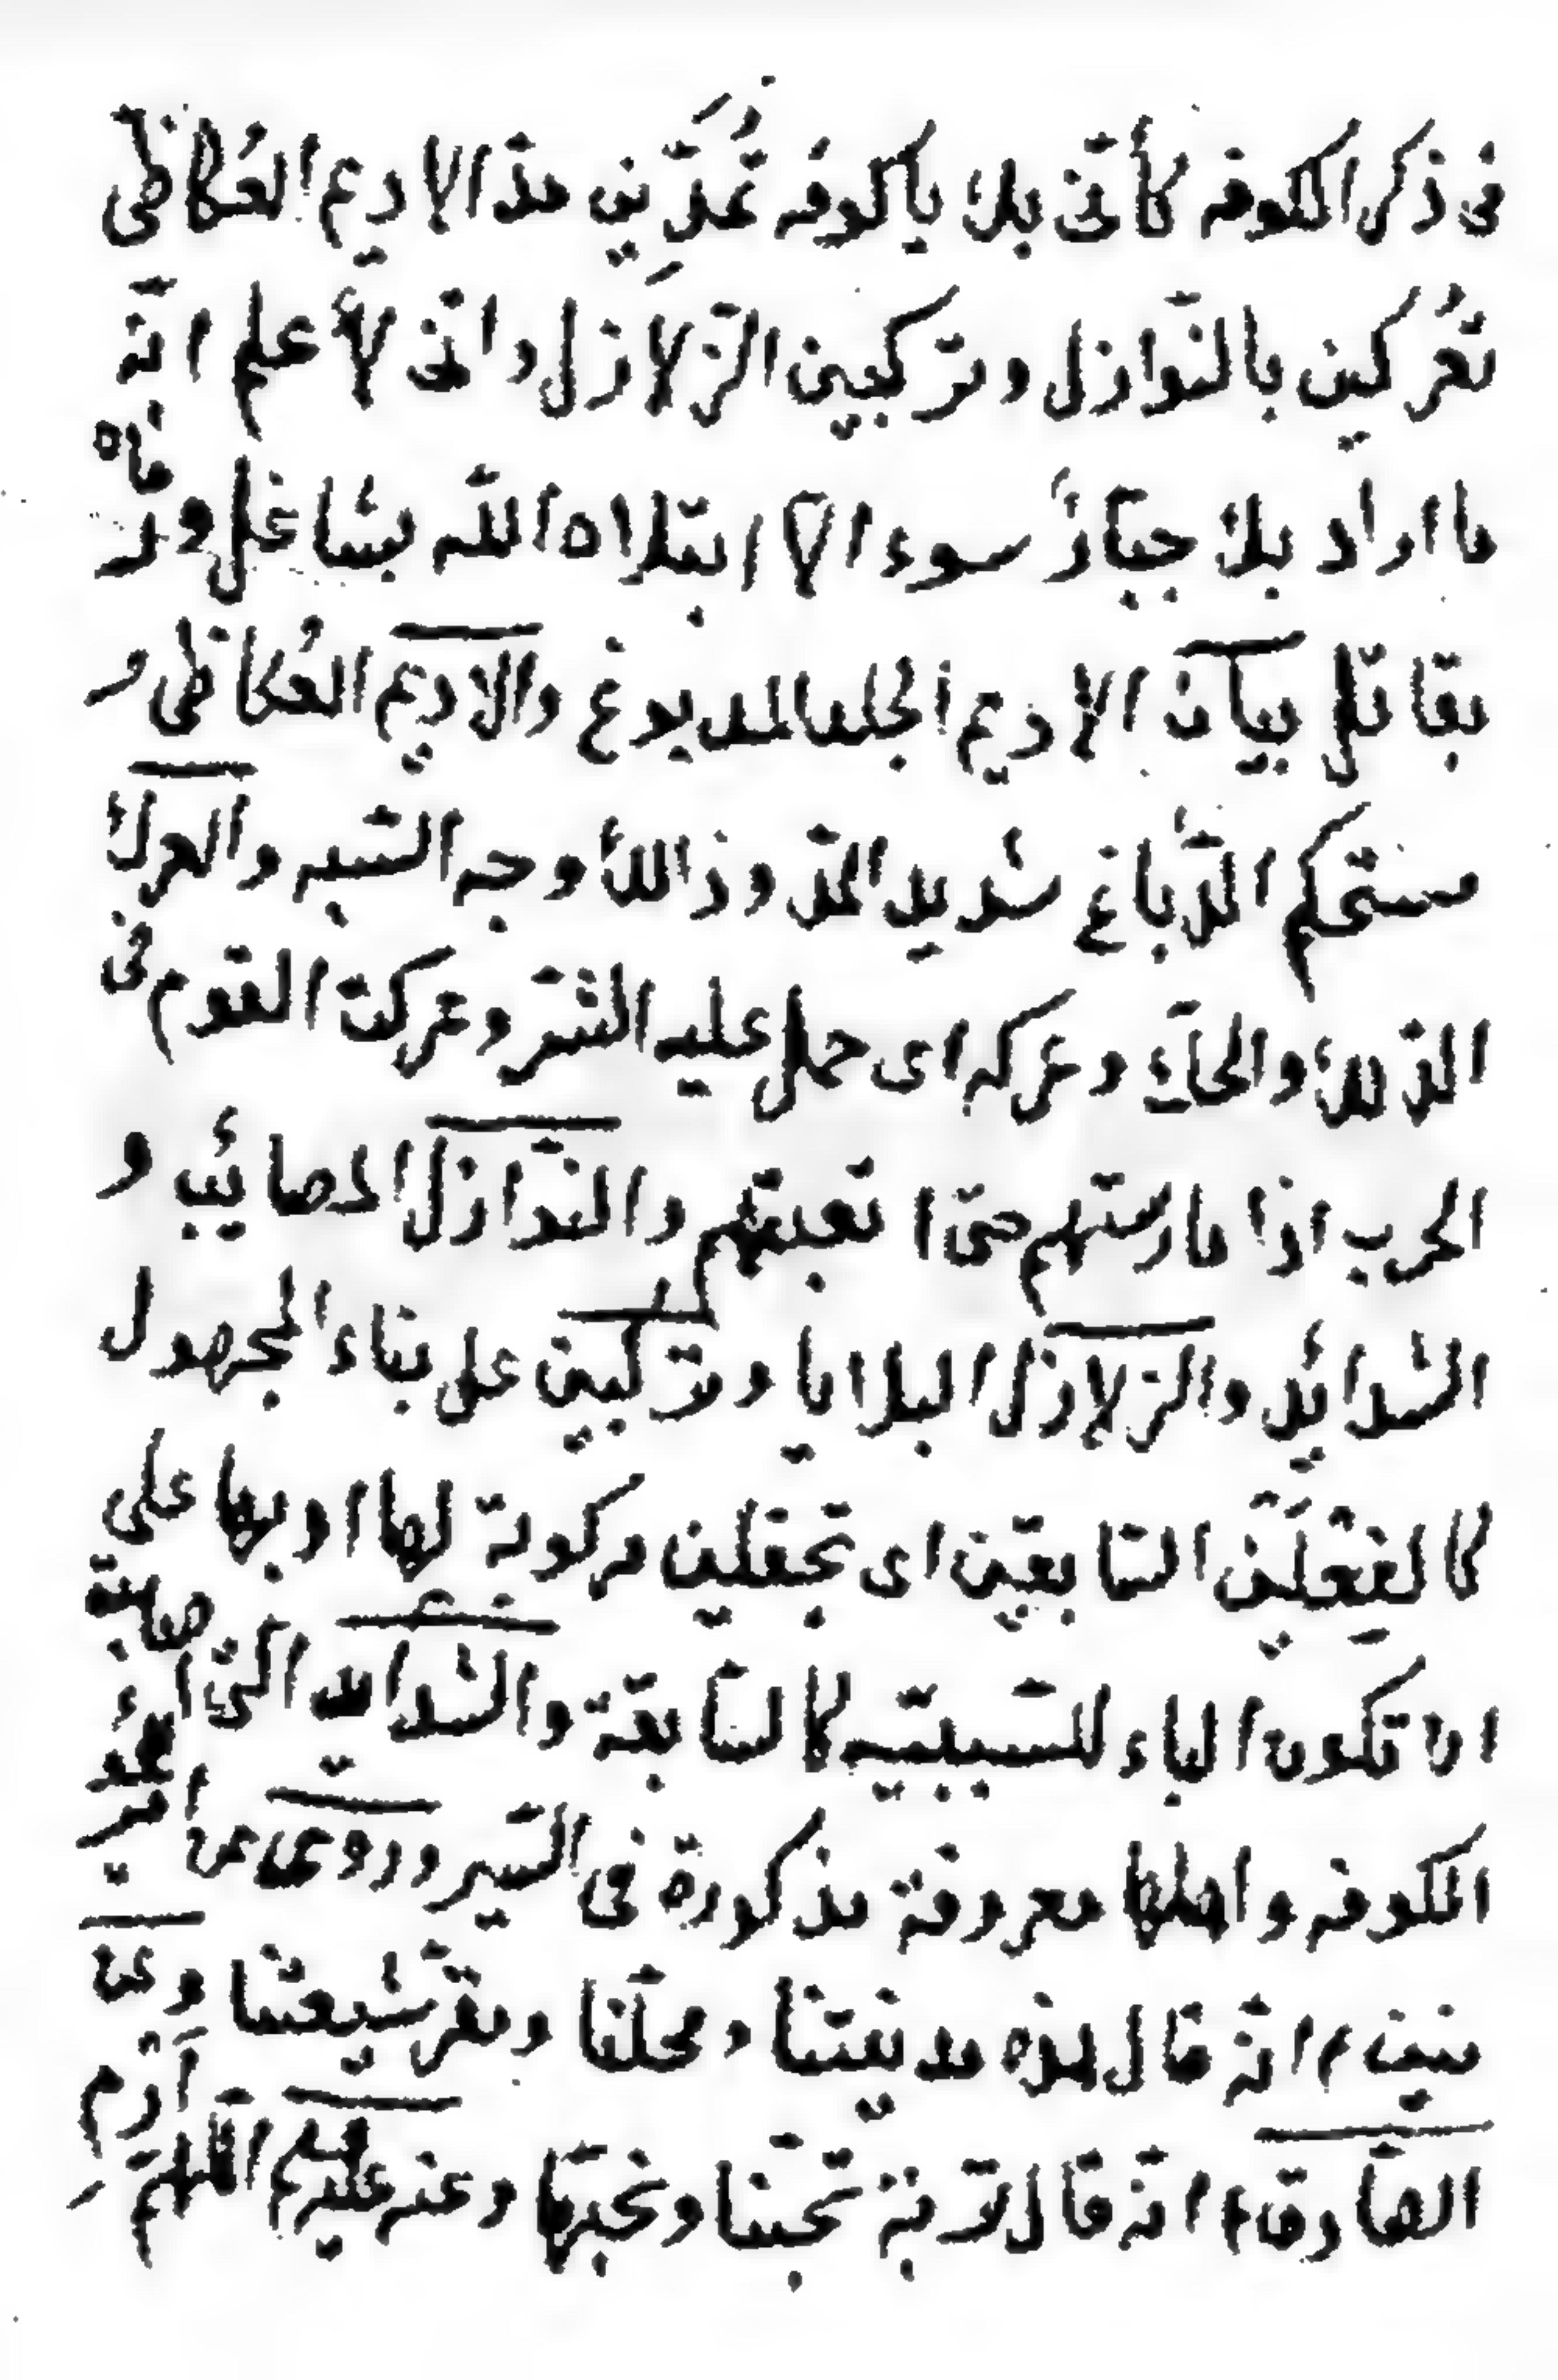 فى ذكر الكوفه كأنّى بك يا كوفه تُمَدِّين مدّ الاديم العُكاظى
تُعركين بالنّوازل وتركبين الزّلازل وانّى لأعلم انّه
ما اراد بك جبّارٌ سوء الّا ابتلاه الله بشاغل ورماه
بقاتل بيان الاديم الجلد المدبوغ والاديم العُكاظى
مستحكم الدّباغ شديد المدّ وذلك وجه الشّبه والعرك
الدّلك والحكّ وعركه اى حمل عليه الشّر وعركت القوم فى
الحرب اذا مارستهم حتّى اتعبتهم والنّوازل المصائب و
الشدائد والزلازل البلايا وتركبين على بناء المجهول
كالفعلَين السّابقين اى تجعلين مركوبة لها او بها على
ان تكون الباء للسّببيّه كالسّابقة والشدائد الّتى اصابت
الكوفه واهلها معروفة مذكورة فى السّير وروى عن امير
منين ء انّه قال هذه مدينتنا ومحلّنا ومقرّ شيعتنا وعن
الصّادق ء انّه قال تربة تحبّنا ونحبّها وعنه عليه السلم اللّهمّ ارم